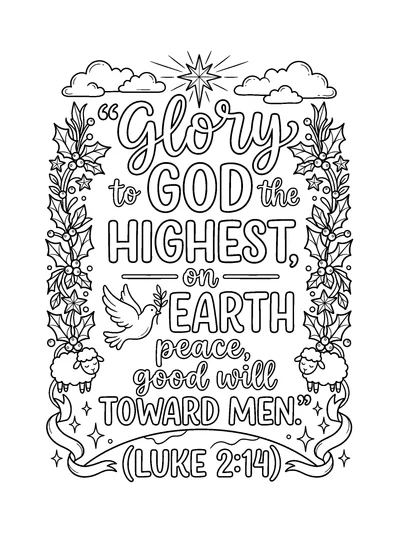 “Glory
to GOD the
HIGHEST,
on
EARTH
peace,
good will
TOWARD MEN.”
(LUKE 2:14)